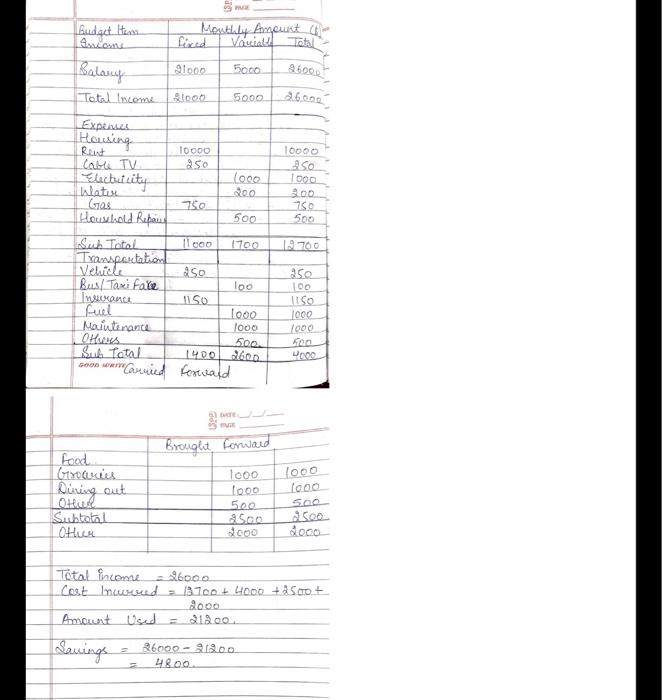 PAGE
Budget Item Monthly Amount
Income Fixed Variable Total
Salary 21000 5000 26000
Total Income 21000 5000 26000
Expenses
Housing
Rent 10000 10000
Cable TV 250 250
Electricity 1000 1000
Water 200 200
Gas 750 750
Household Repairs 500 500
Sub Total 11000 1700 12700
Transportation
Vehicle 250 250
Bus/Taxi Fare 100 100
Insurance 1150 1150
Fuel 1000 1000
Maintenance 1000 1000
Others 500 500
Sub Total 1400 2600 4000
GOOD WRITE Carried Forward
DATE: / /
PAGE
Brought Forward
Food
Groceries 1000 1000
Dining out 1000 1000
Other 500 500
Subtotal 2500 2500
Other 2000 2000
Total Income = 26000
Cost Incurred = 12700 + 4000 + 2500 +
2000
Amount Used = 21200.
Savings = 26000 - 21200
= 4800.